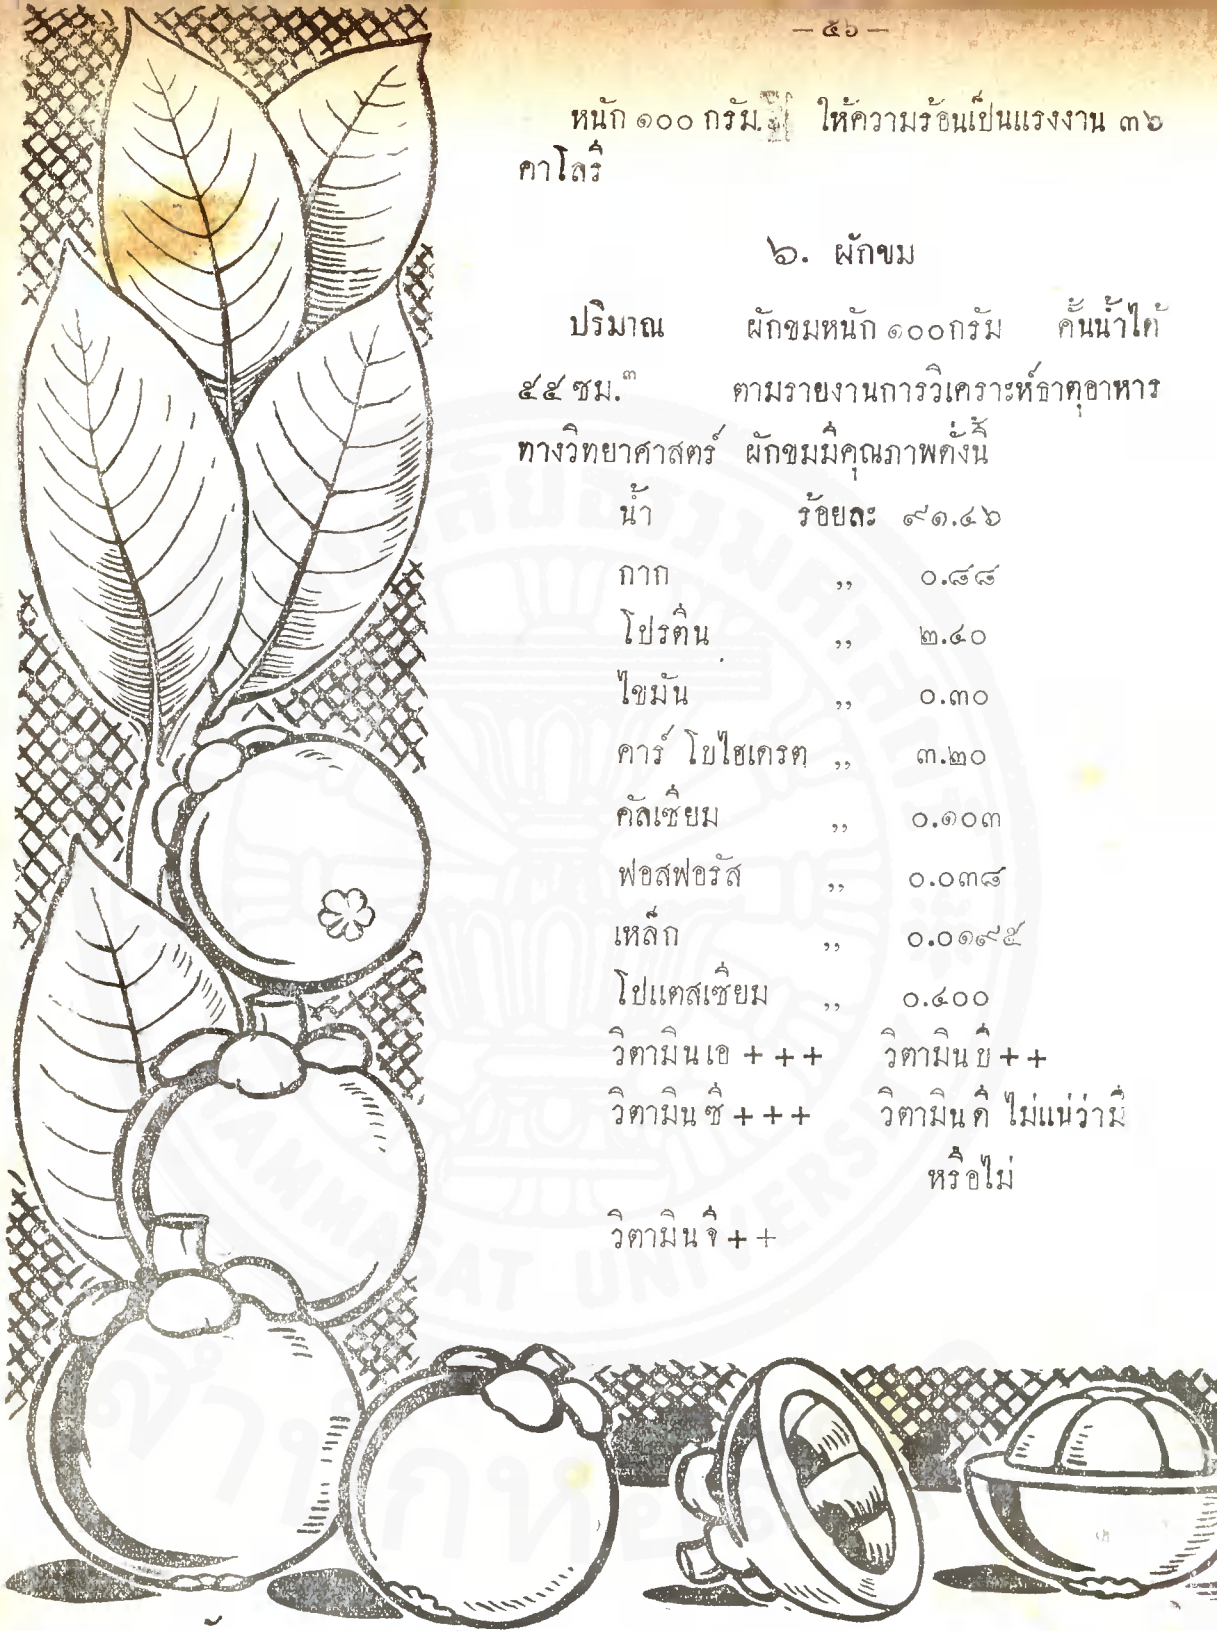 — ๕๖ —
หนัก ๑๐๐ กรัม. ให้ความร้อนเป็นแรงงาน ๓๖
คาโลรี่
๖. ผักขม
ปริมาณ ผักขมหนัก ๑๐๐กรัม คั้นน้ำได้
๕๕ ซม.๓ ตามรายงานการวิเคราะห์ธาตุอาหาร
ทางวิทยาศาสตร์ ผักขมมีคุณภาพดั่งนี้
น้ำ ร้อยละ ๙๑.๔๖
กาก ,, ๐.๘๘
โปรตีน ,, ๒.๔๐
ไขมัน ,, ๐.๓๐
คาร์ โบไฮเดรต ,, ๓.๒๐
คัลเซี่ยม ,, ๐.๑๐๓
ฟอสฟอรัส ,, ๐.๐๓๘
เหล็ก ,, ๐.๐๑๙๕
โปแตสเซี่ยม ,, ๐.๔๐๐
วิตามินเอ + + + วิตามินบี + +
วิตามินซี + + + วิตามินดี ไม่แน่ว่ามี
หรือไม่
วิตามินจี + +
THAMMASAT UNIVERSITY